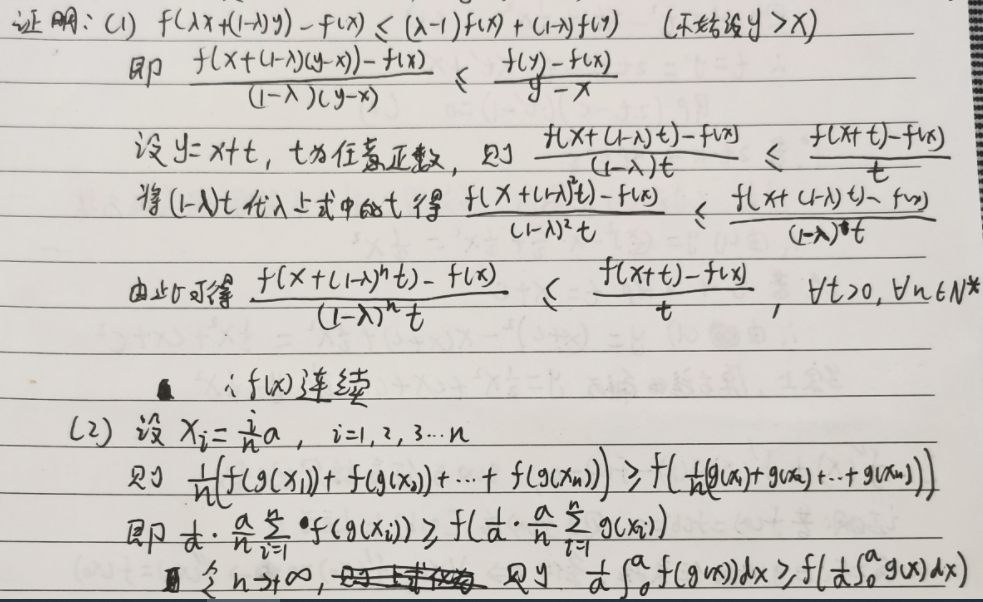 证明：(1) f(λx+(1-λ)y)-f(x) ≤ (λ-1)f(x)+(1-λ)f(y) (不妨设y>x)
即 \frac{f(x+(1-λ)(y-x))-f(x)}{(1-λ)(y-x)} ≤ \frac{f(y)-f(x)}{y-x}
设 y=x+t, t为任意正数, 则 \frac{f(x+(1-λ)t)-f(x)}{(1-λ)t} ≤ \frac{f(x+t)-f(x)}{t}
将(1-λ)t代入上式中的t 得 \frac{f(x+(1-λ)^2t)-f(x)}{(1-λ)^2t} ≤ \frac{f(x+(1-λ)t)-f(x)}{(1-λ)t}
由此可得 \frac{f(x+(1-λ)^nt)-f(x)}{(1-λ)^nt} ≤ \frac{f(x+t)-f(x)}{t}, ∀t>0, ∀n∈N*
∴f(x)连续
(2) 设 x_i=\frac{i}{n}a, i=1,2,3…n
则 \frac{1}{n}(f(g(x_1))+f(g(x_2))+…+f(g(x_n))) ≥ f(\frac{1}{n}(g(x_1)+g(x_2)+…+g(x_n)))
即 \frac{1}{a}·\frac{a}{n}\sum_{i=1}^{n}f(g(x_i)) ≥ f(\frac{1}{a}·\frac{a}{n}\sum_{i=1}^{n}g(x_i))
令 n→+∞, 则 \frac{1}{a}∫_0^a f(g(x))dx ≥ f(\frac{1}{a}∫_0^a g(x)dx)